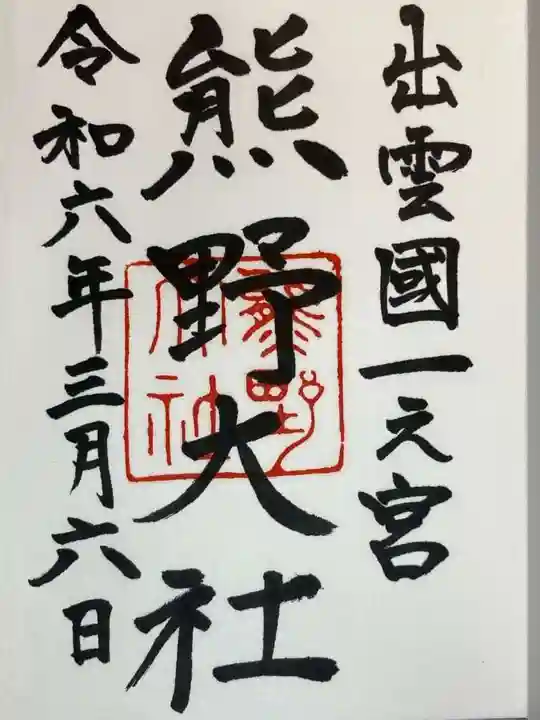 出雲國一之宮
熊野大社
熊野大社
令和六年三月六日